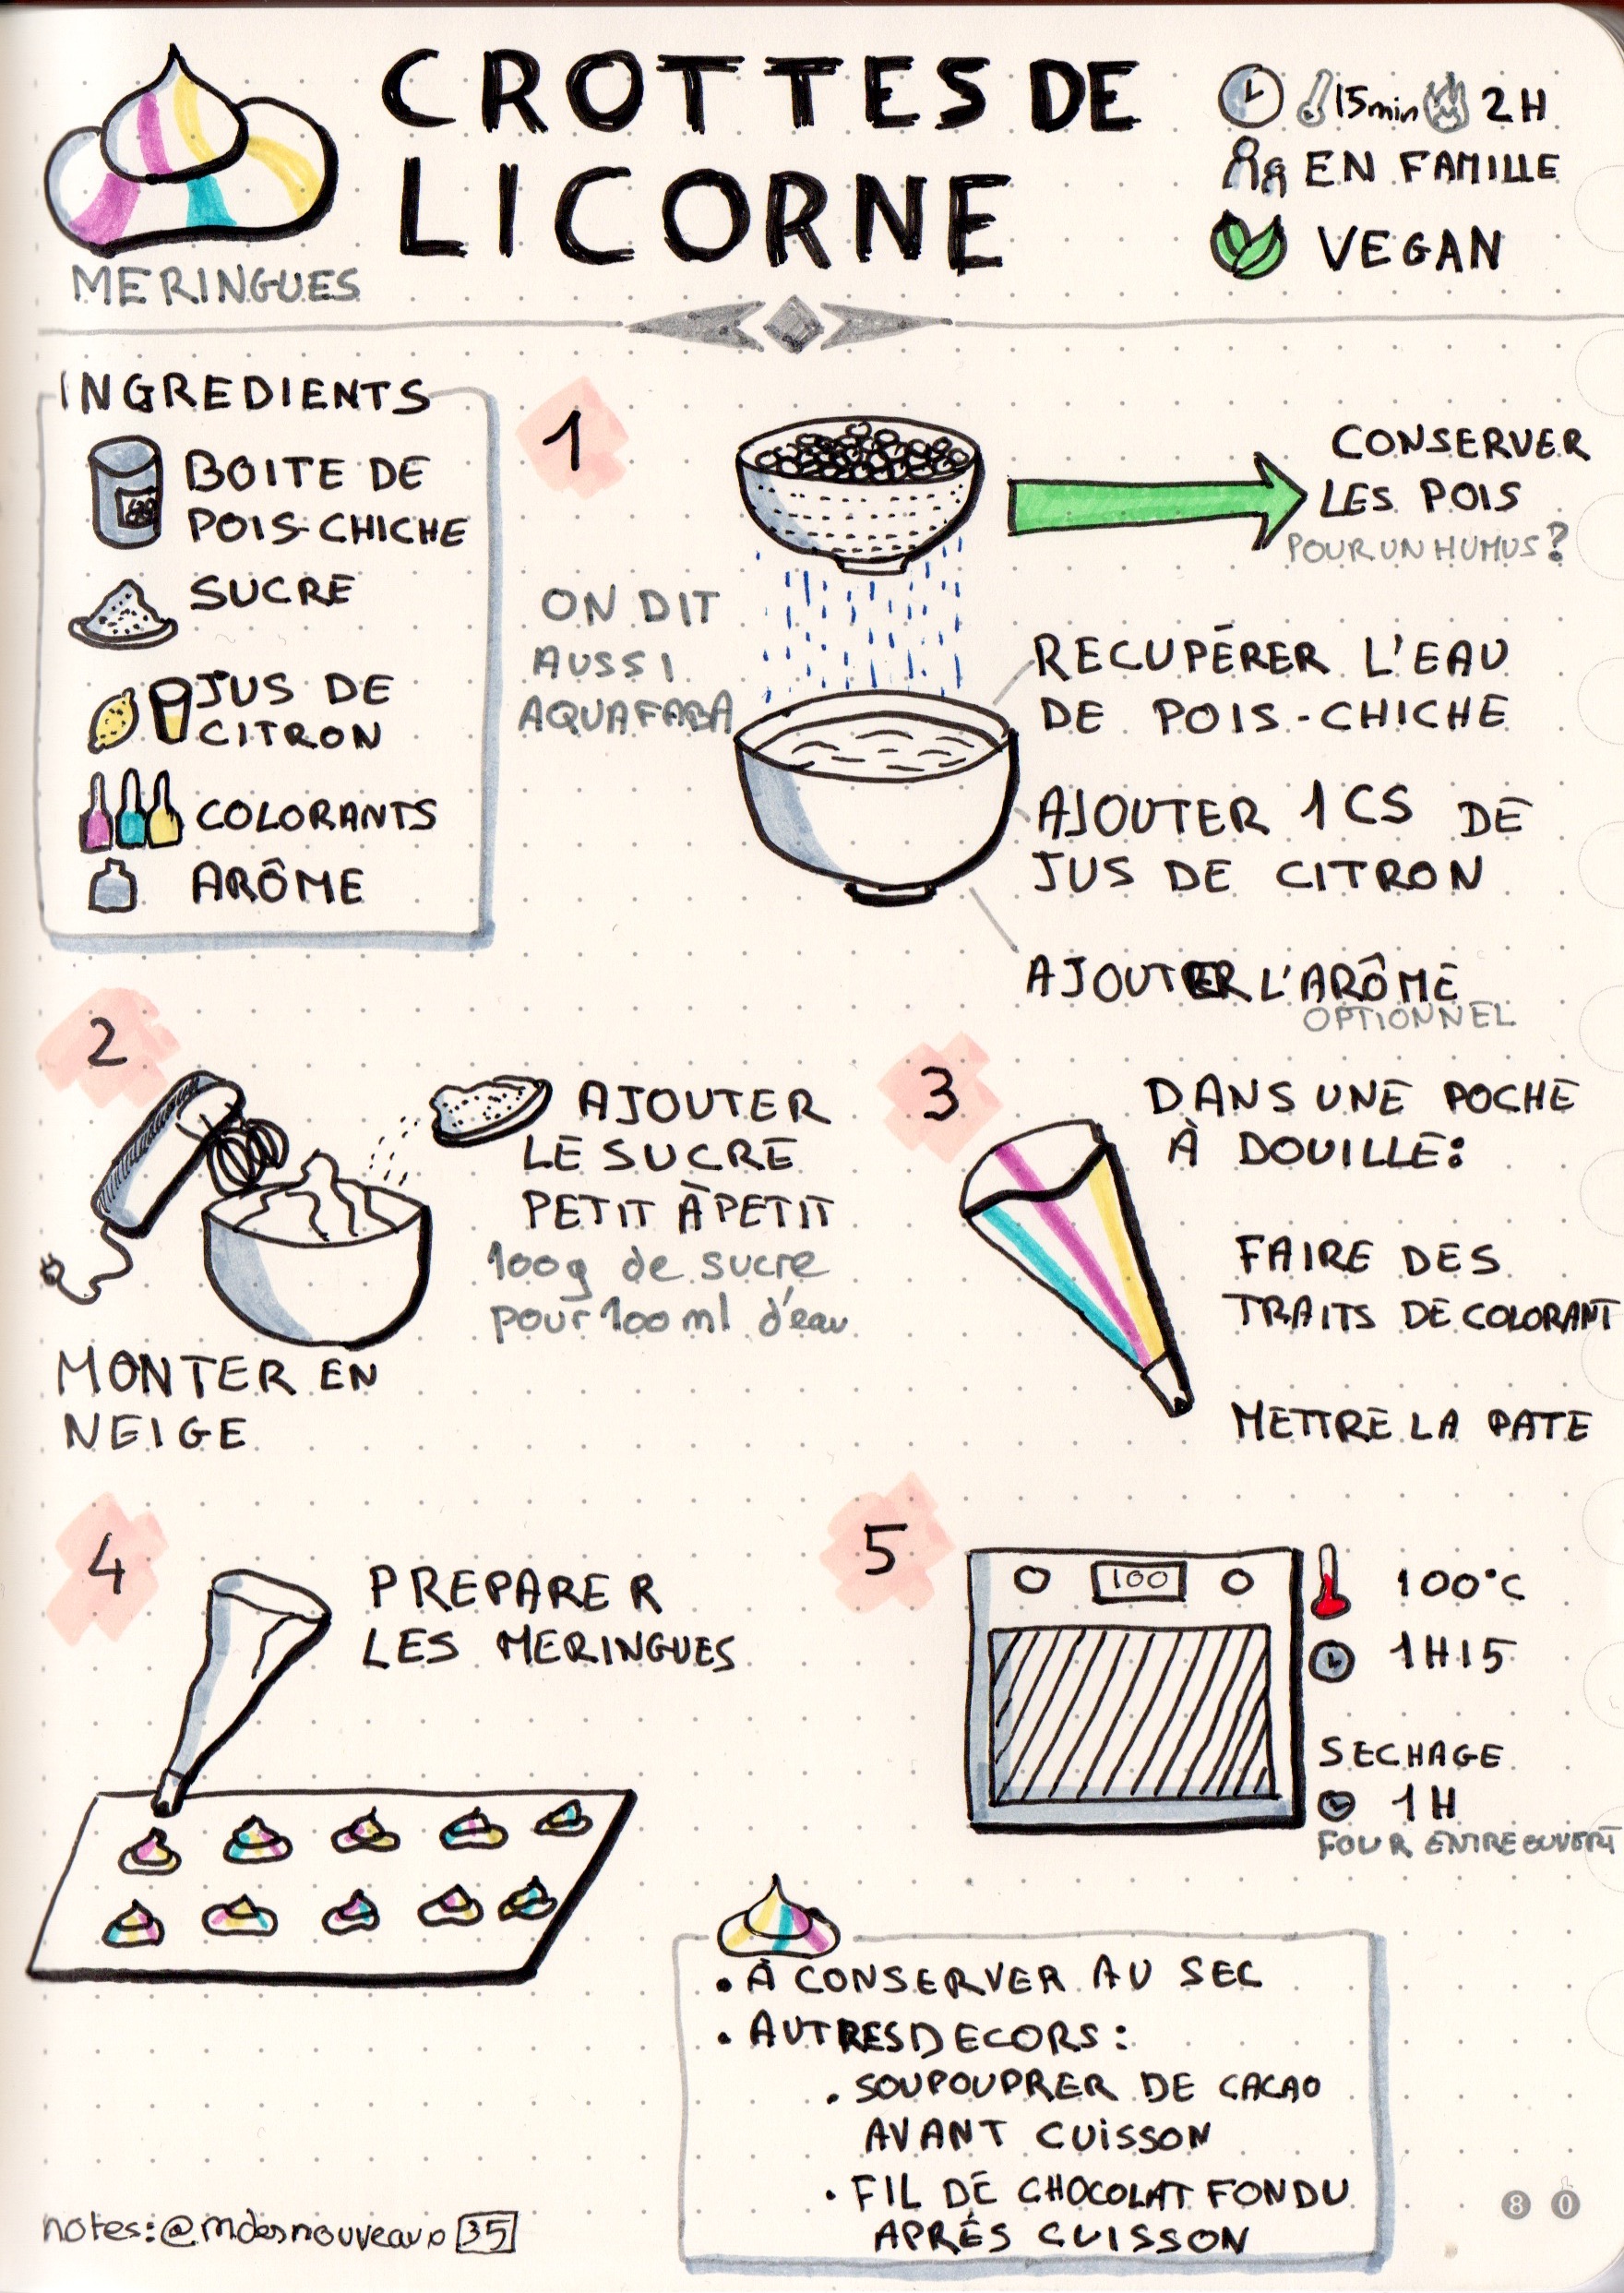 CROTTES DE
LICORNE
15min 2H
EN FAMILLE
VEGAN
MERINGUES
INGREDIENTS
BOITE DE
POIS-CHICHE
SUCRE
JUS DE
CITRON
COLORANTS
ARÔME
1
CONSERVER
LES POIS
POUR UN HUMUS?
ON DIT
AUSSI
AQUAFABA
RECUPÉRER L'EAU
DE POIS-CHICHE
AJOUTER 1CS DE
JUS DE CITRON
AJOUTER L'ARÔME
OPTIONNEL
2
AJOUTER
LE SUCRE
PETIT À PETIT
100g de sucre
pour 100ml d'eau
MONTER EN
NEIGE
3
DANS UNE POCHE
À DOUILLE:
FAIRE DES
TRAITS DE COLORANT
METTRE LA PATE
4
PREPARER
LES MERINGUES
5
100
100°C
1H15
SECHAGE
1H
FOUR ENTREOUVERT
• À CONSERVER AU SEC
• AUTRES DECORS:
• SOUPOUPRER DE CACAO
AVANT CUISSON
• FIL DE CHOCOLAT FONDU
APRÉS CUISSON
notes: @mdesnouveaux 35
80